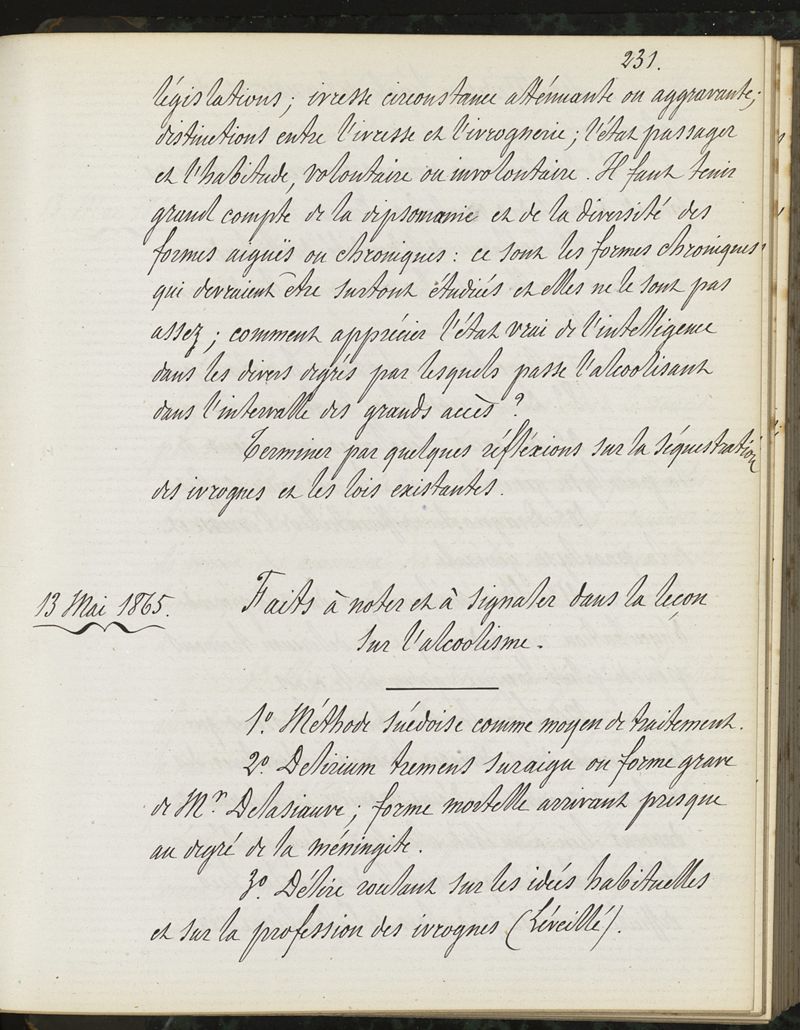 231.
législations; ivresse circonstance atténuante ou aggravante;
distinctions entre l'ivresse et l'ivrognerie; l'état passager
et l'habitude, volontaire ou involontaire. Il faut tenir
grand compte de la dipsomanie et de la diversité des
formes aiguës ou chroniques: ce sont les formes chroniques
qui devraient être surtout étudiées et elles ne le sont pas
assez; comment apprécier l'état vrai de l'intelligence
dans les divers degrés par lesquels passe l'alcoolisant
dans l'intervalle des grands accès?
Terminer par quelques réfléxions sur la séquestration
des ivrognes et les lois existantes.
13 Mai 1865.
Faits à noter et à signaler dans la leçon
sur l'alcoolisme.
1º. Méthode suédoise comme moyen de traitement.
2º. Delirium tremens suraigu ou forme grave
de Mr. Delasiauve; forme mortelle arrivant presque
au degré de la méningite.
3º. Délire roulant sur les idées habituelles
et sur la profession des ivrognes (Léveillé).